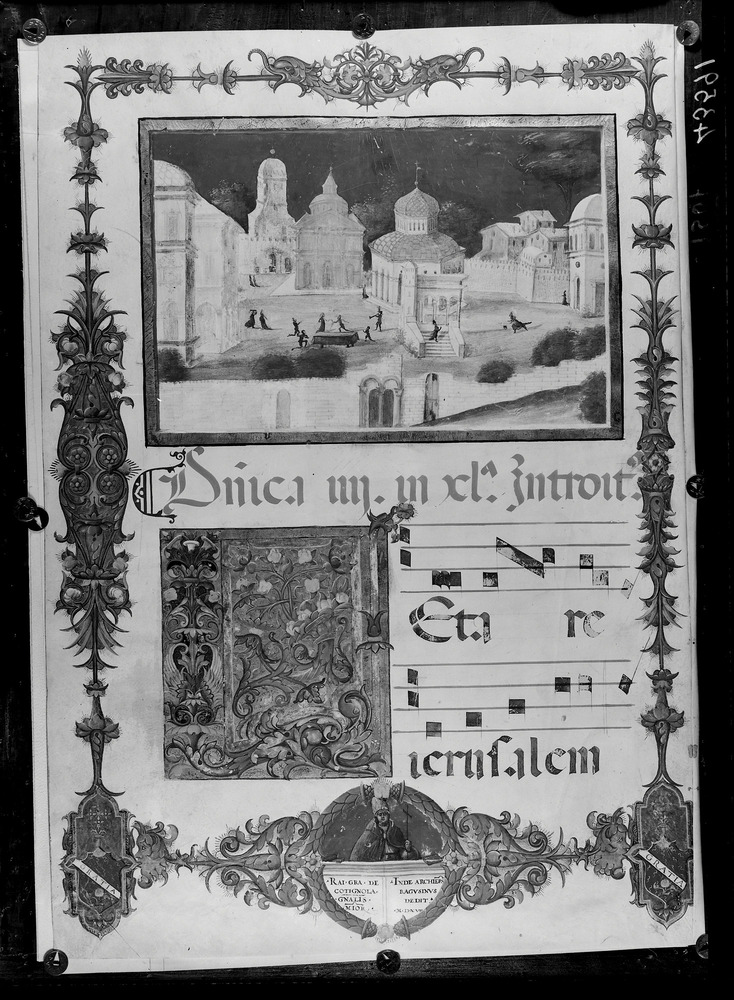 43591
Dñica iiij. in xl.ª Introit.
Eta re
ierusalem
GRATIA
GRATIA
RAI · GRA · DE
COTIGNOLA ·
GNALIS ·
MIOR ·
INDE ARCHIEP
RAGVSINVS
DEDIT